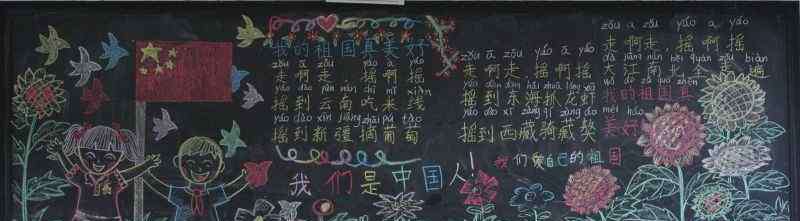 我的祖国真美好
zǒu a zǒu yáo a yáo
走啊走,摇啊摇
yáo dào yún nán chī mǐ xiàn
摇到云南吃米线
yáo dào xīn jiāng zhāi pú táo
摇到新疆摘葡萄
我们是中国人!
zǒu ā zǒu yáo ā yáo
走啊走,摇啊摇
yáo dào dōng hǎi zhuā lóng xiā
摇到东海抓龙虾
yáo dào xī zàng qí zàng áo
摇到西藏骑藏獒
我们爱自己的祖国
zǒu a zǒu yáo a yáo
走啊走,摇啊摇
dà jiāng nán běi quán zǒu biàn
大江南北全走遍
wǒ de zǔ guó zhēn
我的祖国真
měi hǎo
美好